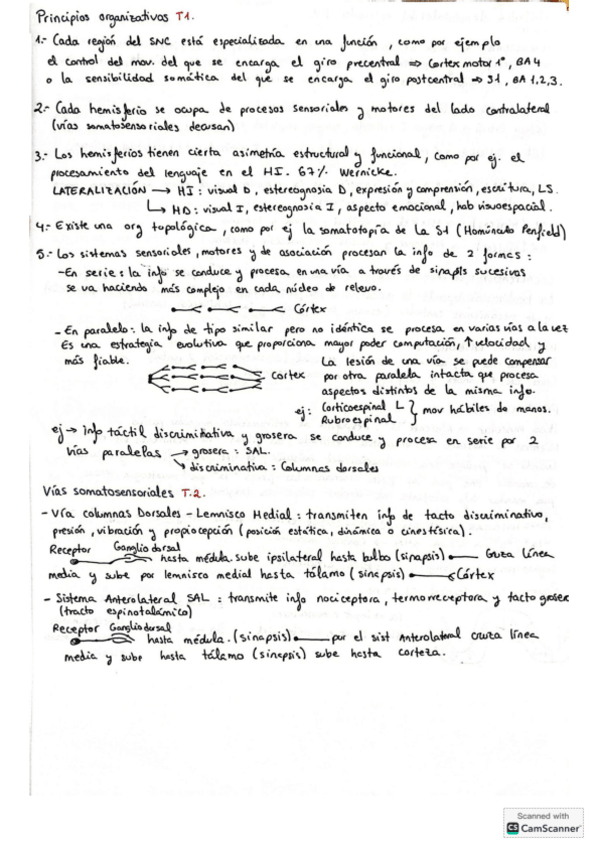 Principios organizativos T1.
1.- Cada región del SNC está especializada en una función, como por ejemplo
el control del mov. del que se encarga el giro precentral ⇒ Cortex motor 1º, BA4
o la sensibilidad somática del que se encarga el giro postcentral ⇒ S1, BA 1,2,3.
2.- Cada hemisferio se ocupa de procesos sensoriales y motores del lado contralateral
(vías somatosensoriales decusan)
3.- Los hemisferios tienen cierta asimetría estructural y funcional, como por ej. el
procesamiento del lenguaje en el HI. 67% Wernicke.
LATERALIZACIÓN → HI: visual D, estereognosia D, expresión y comprensión, escritura, LS.
↳ HD: visual I, estereognosia I, aspecto emocional, hab visoespacial.
4.- Existe una org topológica, como por ej la somatotopía de la S1 (Homúnculo Penfield)
5.- Los sistemas sensoriales, motores y de asociación procesan la info de 2 formas:
- En serie: la info se conduce y procesa en una vía a través de sinapsis sucesivas
se va haciendo más complejo en cada núcleo de relevo.
Córtex
- En paralelo: la info de tipo similar pero no idéntica se procesa en varias vías a la vez
Es una estrategia evolutiva que proporciona mayor poder computación, ↑velocidad y
más fiable.
Cortex
La lesión de una vía se puede compensar
por otra paralela intacta que procesa
aspectos distintos de la misma info.
ej: Corticoespinal L } mov hábiles de manos.
Rubroespinal
ej → info táctil discriminativa y grosera se conduce y procesa en serie por 2
vías paralelas → grosera: SAL.
↘ discriminativa: Columnas dorsales
Vías somatosensoriales T.2.
- Vía columnas Dorsales - Lemnisco Medial: transmiten info de tacto discriminativo,
presión, vibración y propiocepción (posición estática, dinámica o cinestésica).
Receptor Ganglio dorsal
hasta médula. sube ipsilateral hasta bulbo (sinapsis) Cruza línea
media y sube por lemnisco medial hasta tálamo (sinapsis) Córtex
- Sistema Anterolateral SAL: transmite info nociceptora, termorreceptora y tacto grosero
(tracto espinotalámico)
Receptor Ganglio dorsal
hasta médula. (sinapsis) por el sist Anterolateral cruza línea
media y sube hasta tálamo (sinapsis) sube hasta corteza.
Scanned with
CS CamScanner